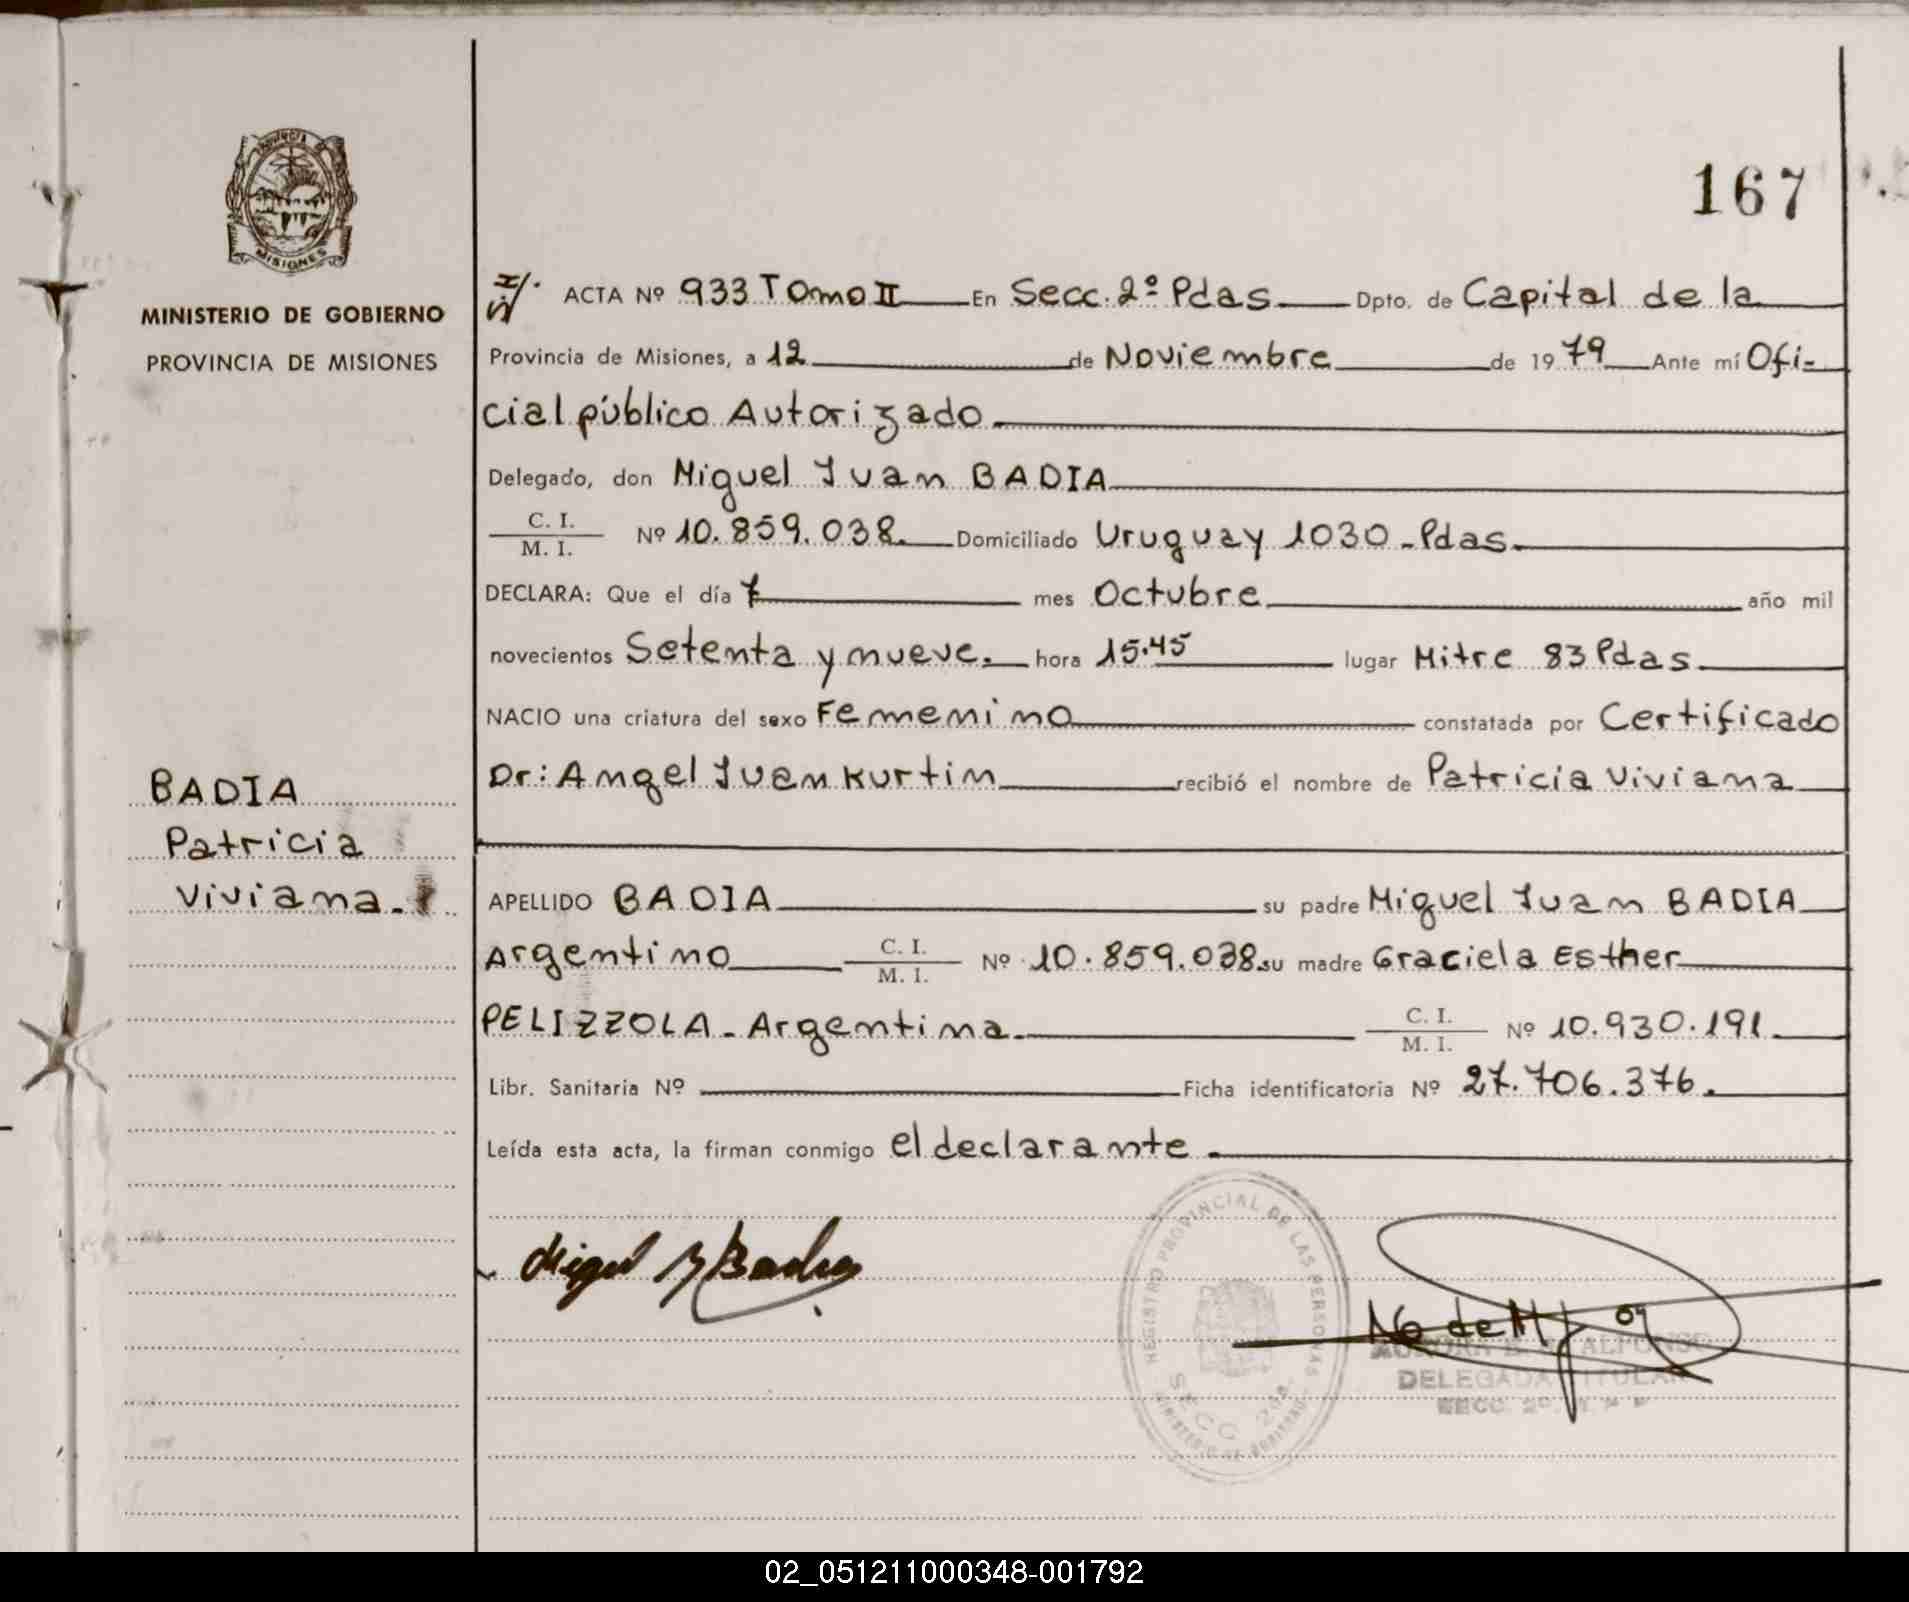 PROVINCIA
MISIONES
MINISTERIO DE GOBIERNO
PROVINCIA DE MISIONES
167
ACTA Nº 933 Tomo II En Secc. 2º Pdas Dpto. de Capital de la
Provincia de Misiones, a 12 de Noviembre de 1979 Ante mí Ofi-
cial público Autorizado.
Delegado, don Miguel Juan BADIA
C. I.
M. I. Nº 10.859.038. Domiciliado Uruguay 1030 - Pdas.
DECLARA: Que el día 7 mes Octubre año mil
novecientos Setenta y nueve. hora 15.45 lugar Mitre 83 Pdas.
NACIO una criatura del sexo Femenino constatada por Certificado
Dr: Angel Juan Kurtin recibió el nombre de Patricia Viviana
BADIA
Patricia
Viviana.
APELLIDO BADIA su padre Miguel Juan BADIA
Argentino C. I.
M. I. Nº 10.859.038. su madre Graciela Esther
PELIZZOLA - Argentina. C. I.
M. I. Nº 10.930.191.
Libr. Sanitaria Nº Ficha identificatoria Nº 27.706.376.
Leída esta acta, la firman conmigo el declarante.
Miguel J Badia
REGISTRO PROVINCIAL DE LAS PERSONAS
SECC 2da.
MINISTERIO DE GOBIERNO
ALFONSO
DELEGADA TITULAR
SECC. 2º
02_051211000348-001792